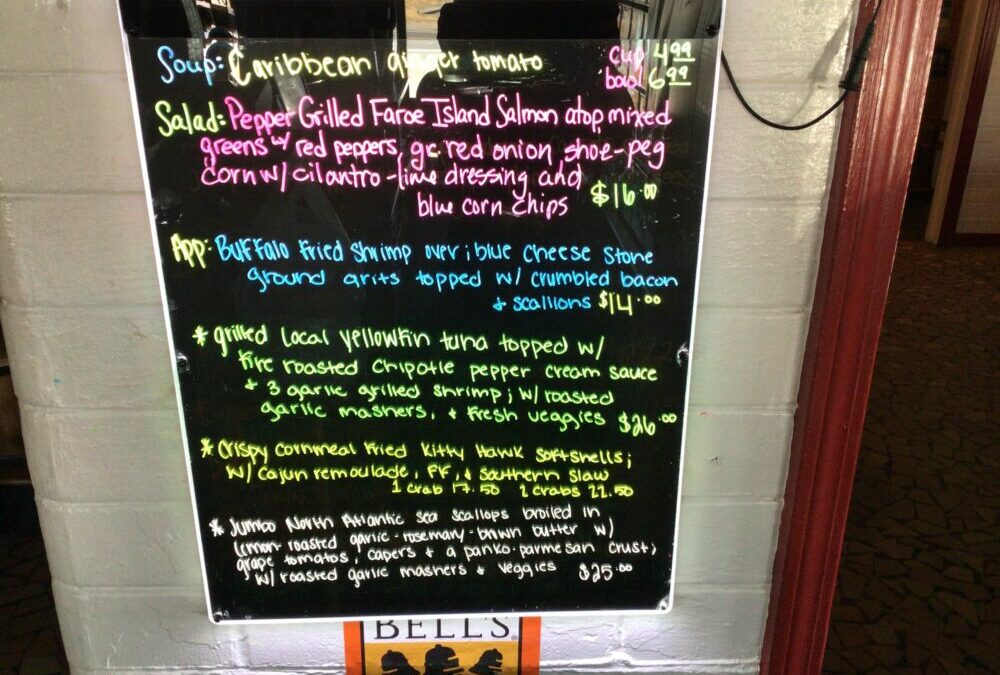 Soup: Caribbean ginger tomato cup 4.99
bowl 6.99
Salad: Pepper Grilled Faroe Island Salmon atop mixed
greens w/ red peppers, gr. red onion, shoe-peg
corn w/ cilantro-lime dressing and
blue corn chips $16.00
App: Buffalo Fried Shrimp over; blue cheese stone
ground grits topped w/ crumbled bacon
+ scallions $14.00
* grilled local yellowfin tuna topped w/
fire roasted chipotle pepper cream sauce
+ 3 garlic grilled shrimp; w/ roasted
garlic mashers, + fresh veggies $26.00
* Crispy cornmeal fried Kitty Hawk softshells;
w/ cajun remoulade, FF, + southern slaw
1 crab 17.50 2 crabs 22.50
* Jumbo North Atlantic sea scallops broiled in
lemon-roasted garlic-rosemary-brown butter w/
grape tomatos, capers + a panko-parmesan crust;
w/ roasted garlic mashers + veggies $25.00
BELL'S